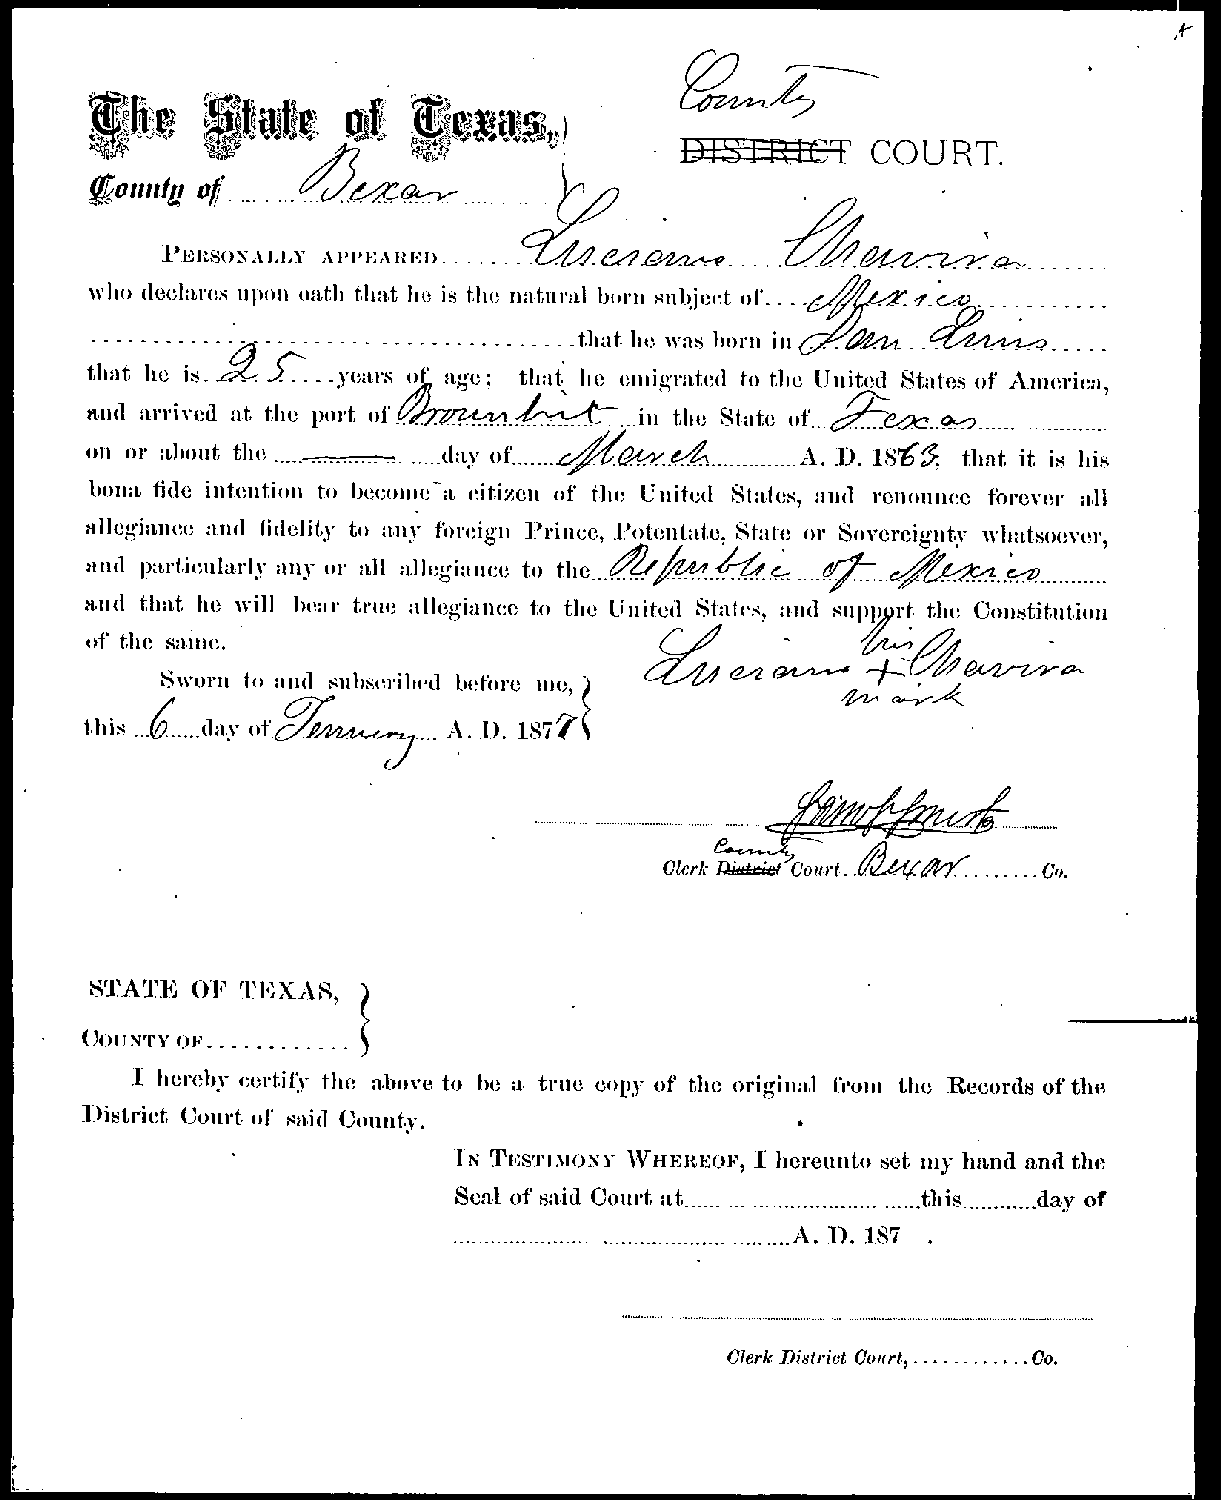 County
The State of Texas,
DISTRICT COURT.
County of Bexar
PERSONALLY APPEARED Luciano Chavira
who declares upon oath that he is the natural born subject of Mexico
that he was born in San Luis
that he is 25 years of age; that he emigrated to the United States of America,
and arrived at the port of in the State of Texas
on or about the —— day of March A. D. 1863, that it is his
bona fide intention to become a citizen of the United States, and renounce forever all
allegiance and fidelity to any foreign Prince, Potentate, State or Sovereignty whatsoever,
and particularly any or all allegiance to the Republic of Mexico
and that he will bear true allegiance to the United States, and support the Constitution
of the same.
his
Luciano + Chavira
mark
Sworn to and subscribed before me,
this 6 day of A. D. 1877
County
Clerk District Court. Bexar Co.
STATE OF TEXAS,
COUNTY OF
I hereby certify the above to be a true copy of the original from the Records of the
District Court of said County.
IN TESTIMONY WHEREOF, I hereunto set my hand and the
Seal of said Court at this day of
A. D. 187 .
Clerk District Court, Co.